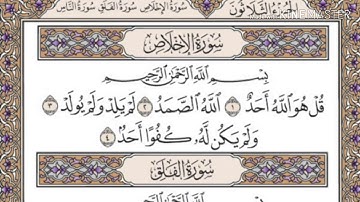 الجزء الثلاثون
سورة الإخلاص سورة الفلق سورة الناس
KINEMASTER
سُورَةُ الإِخْلَاصِ
بِسْمِ اللَّهِ الرَّحْمَٰنِ الرَّحِيمِ
قُلْ هُوَ اللَّهُ أَحَدٌ ١ اللَّهُ الصَّمَدُ ٢ لَمْ يَلِدْ وَلَمْ يُولَدْ ٣
وَلَمْ يَكُن لَّهُ كُفُوًا أَحَدٌ ٤
سُورَةُ الْفَلَقِ
بِسْمِ اللَّهِ الرَّحْمَٰنِ الرَّحِيمِ